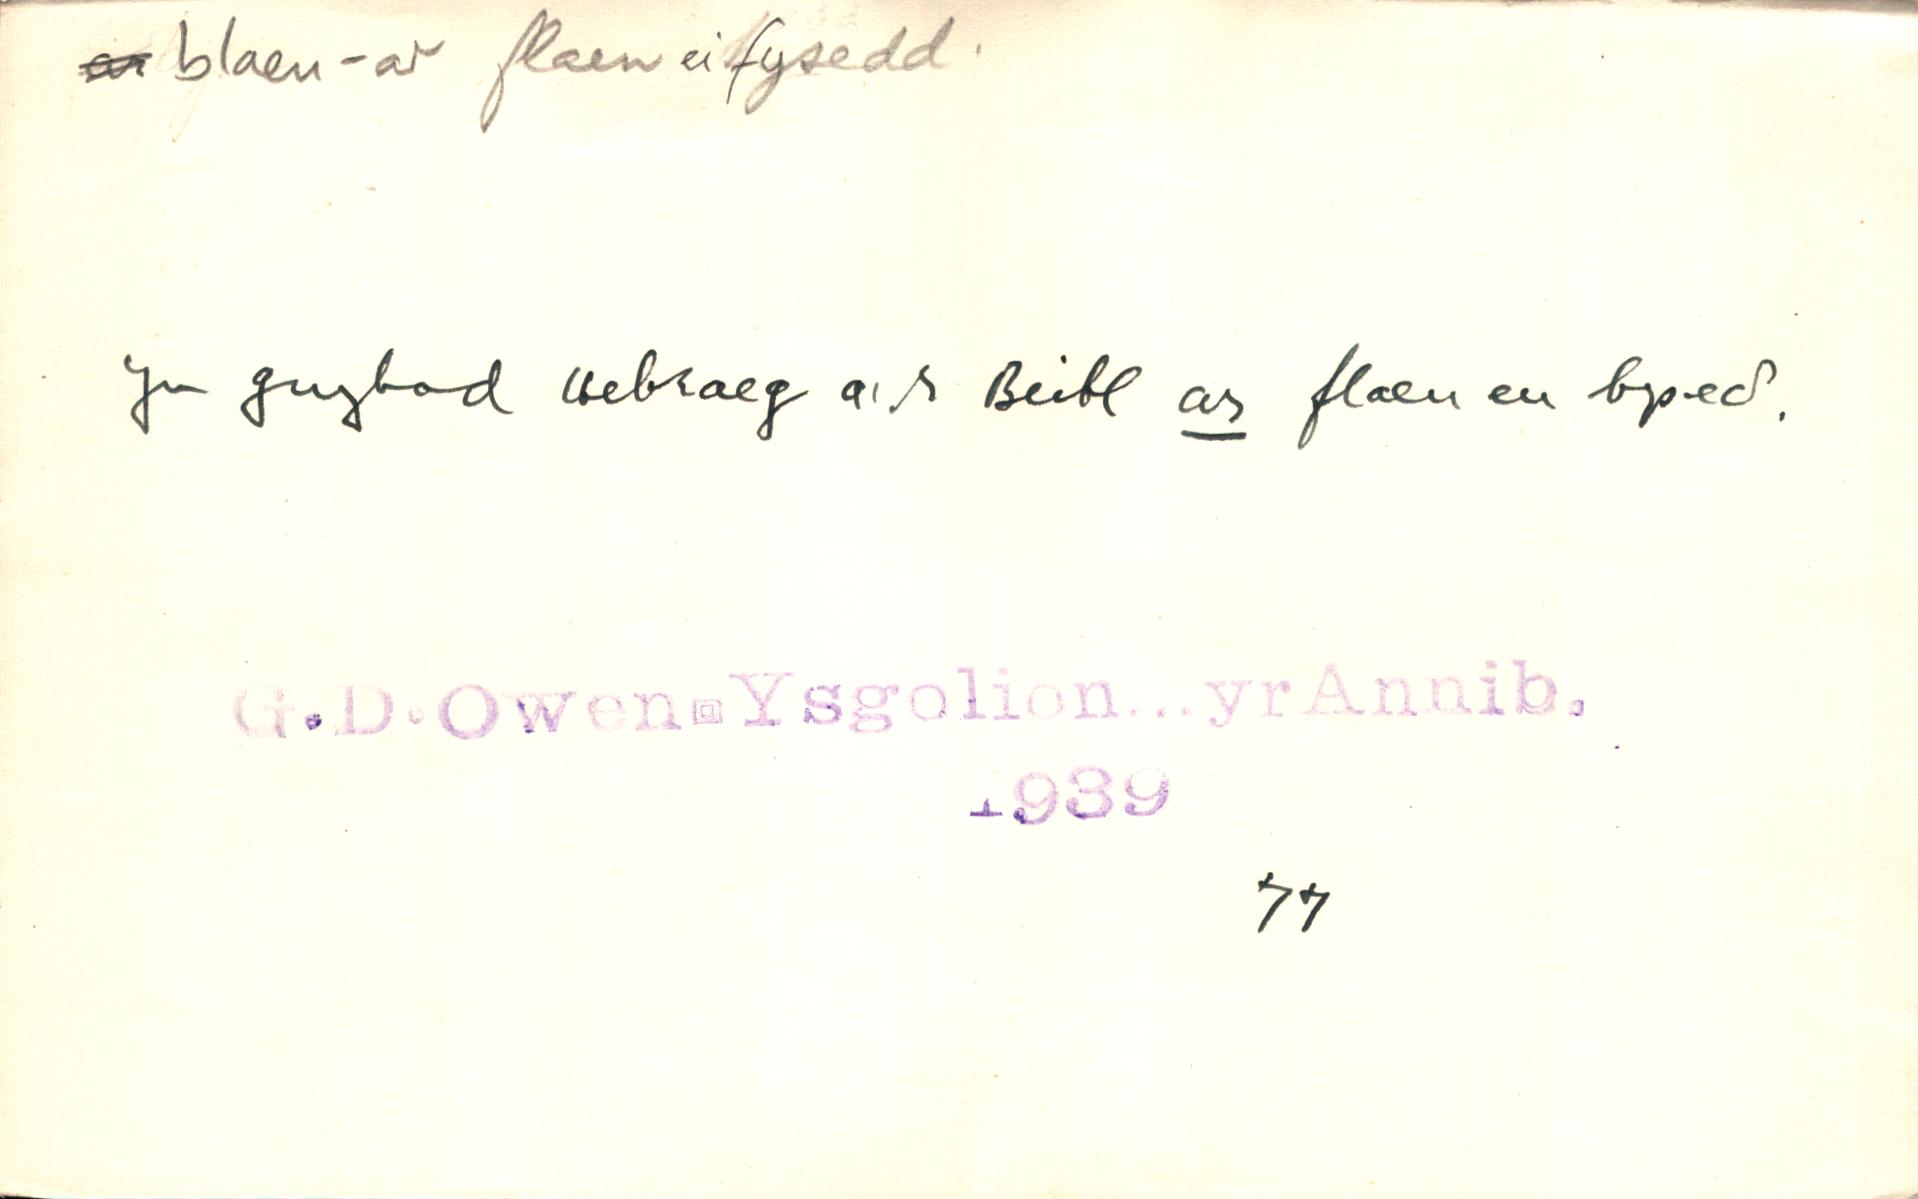 ~~ar~~ blaen - ar flaen ei fysedd.
Yn gwybod Hebraeg a'r Beibl ar flaen eu bysedd.
G.D.Owen Ysgolion...yr Annib.
1939
77